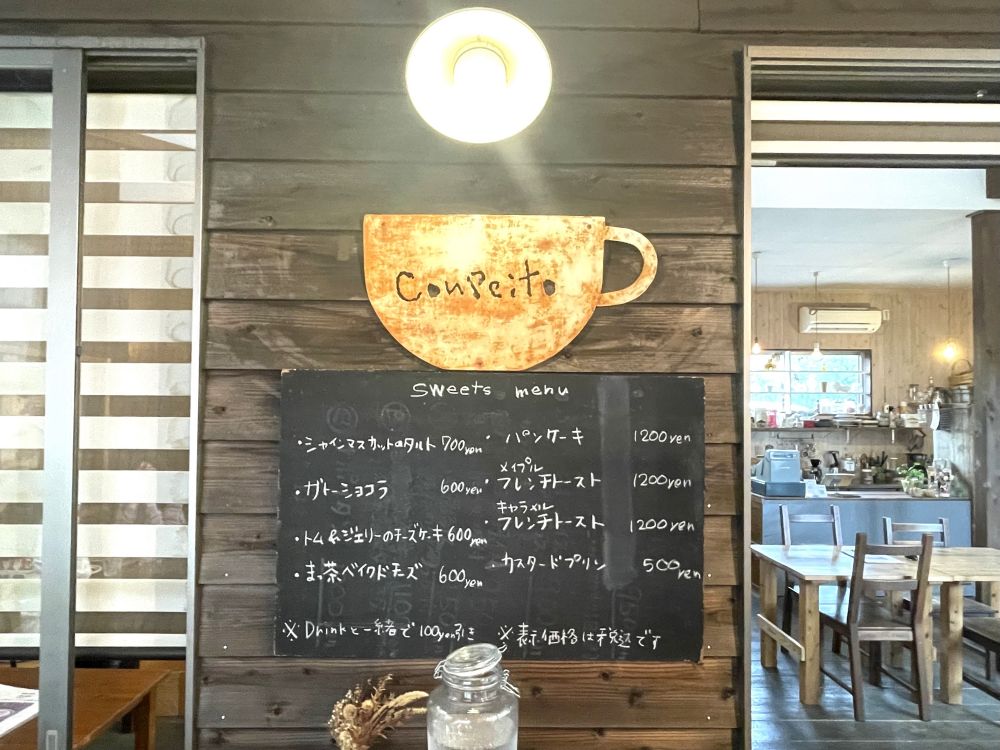 Conpeito
sweets menu
・シャインマスカットのタルト 700yen
・ガトーショコラ 600yen
・トム&ジェリーのチーズケーキ 600yen
・まっ茶ベイクドモーズ 600yen
・パンケーキ 1200yen
・メイプル
フレンチトースト 1200yen
・キャラメル
フレンチトースト 1200yen
・カスタードプリン 500yen
※Drinkと一緒で100yen引き
※表示価格は税込です